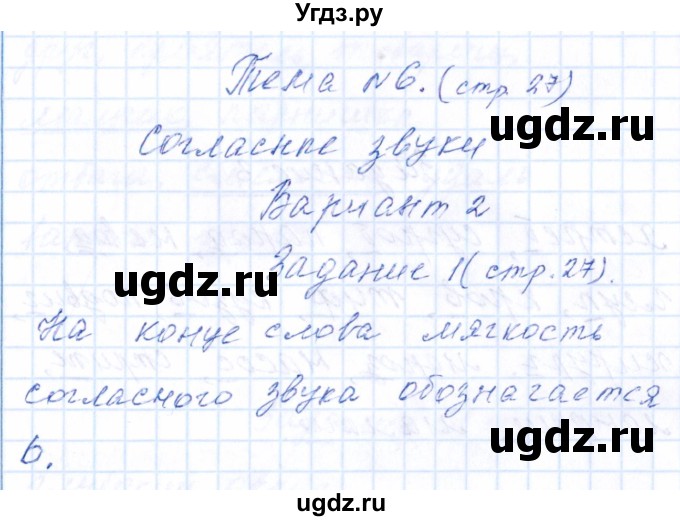 Угдз.ру
Тема №6. (стр. 27)
ugdz.ru
Согласные звуки
Вариант 2
ugdz.ru
Задание 1 (стр. 27).
На конце слова мягкость
согласного звука обозначается
ugdz.ru
ь.
ugdz.ru